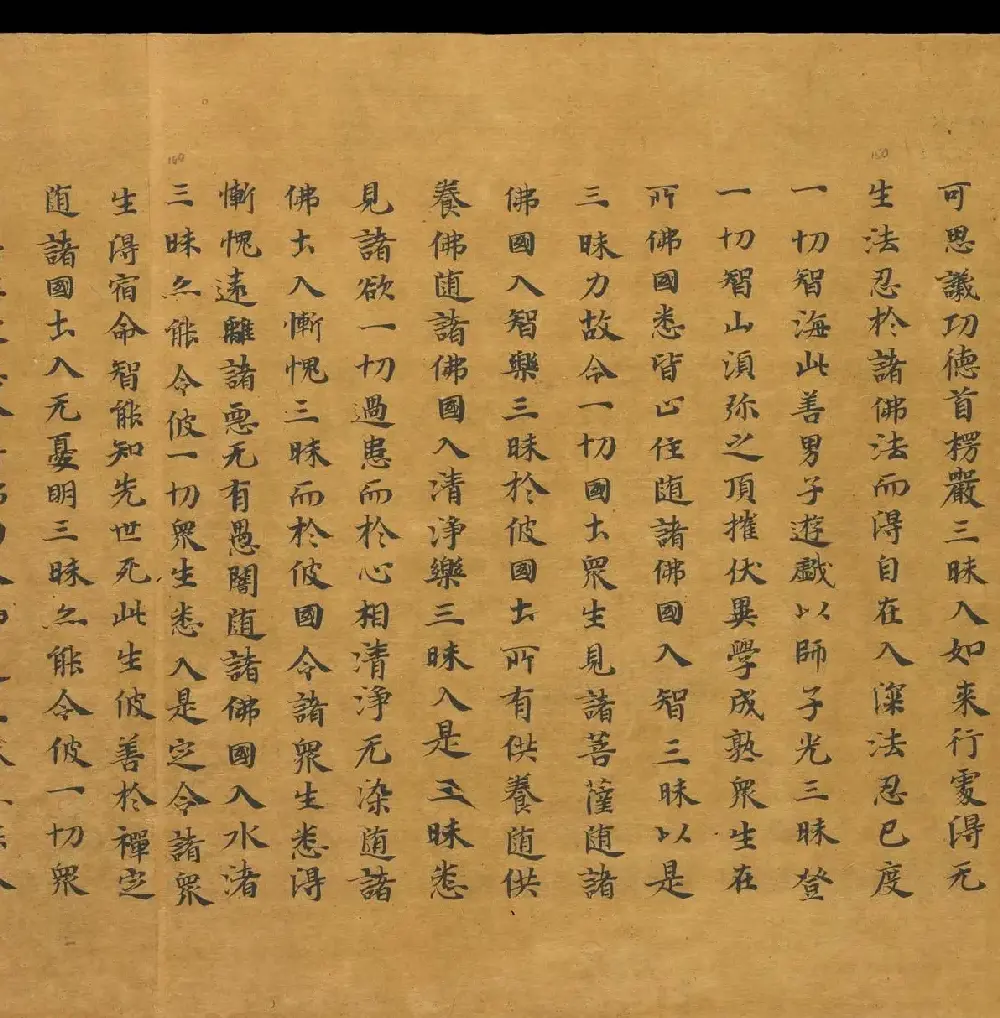 可思議功德首楞嚴三昧入如来行處得无
生法忍於諸佛法而得自在入深法忍已度
一切智海此善男子遊戲以師子光三昧登
一切智山湏弥之頂摧伏異學成熟衆生在
所佛國悉皆止住随諸佛國入智三昧以是
三昧力故令一切國土衆生見諸菩薩随諸
佛國入智樂三昧於彼國土所有供養随供
養佛随諸佛國入清淨樂三昧入是三昧悉
見諸欲一切過患而於心相清淨无染随諸
佛土入慚愧三昧而於彼國令諸衆生悉得
慚愧遠離諸惡无有愚闇随諸佛國入水渚
三昧亦能令彼一切衆生悉入是定令諸衆
生得宿命智能知先世死此生彼善於禪定
随諸國土入无憂明三昧亦能令彼一切衆